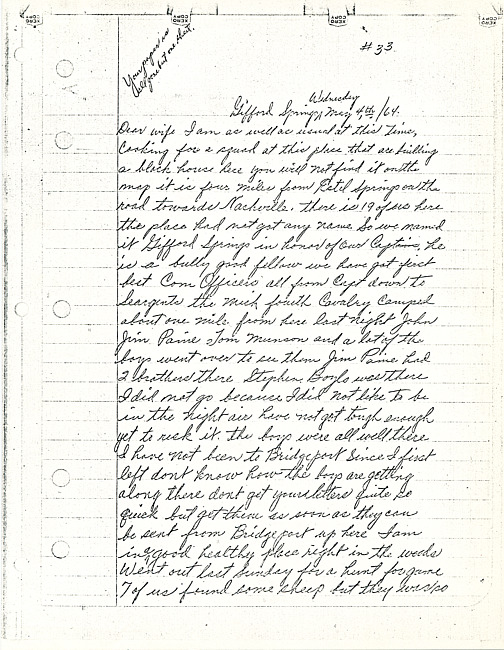 Your paper is
all gone but one sheet.
#33
Wednesday
Gifford Springs, May 4th/64.
Dear wife I am as well as usual at this time,
Cooking for a squad at this place that are building
a block house here you will not find it on the
map it is four miles from Estil Springs on the
road towards Nachvile. there is 19 of us here
the place had not got any name So we named
it Gifford Springs in honor of our Captain, he
is a bully good fellow we have got first
best Com Officers all from Capt down to
Seargents the Mich fourth Cavalry Camped
about one mile from here last night John
Jim Paine Tom Munson and a lot of the
boys went over to see them Jim Paine had
2 brothers there Stephen Boyls was there
I did not go because I did not like to be
in the night air have not got tough enough
yet to risk it. the boys were all well there
I have not been to Bridgeport Since I first
left dont know how the boys are getting
along there dont get your letters quite so
quick but get them as soon as they can
be sent from Bridgeport up here I am
in good healthy place right in the woods
Went out last Sunday for a hunt for game
7 of us found some sheep but they was so